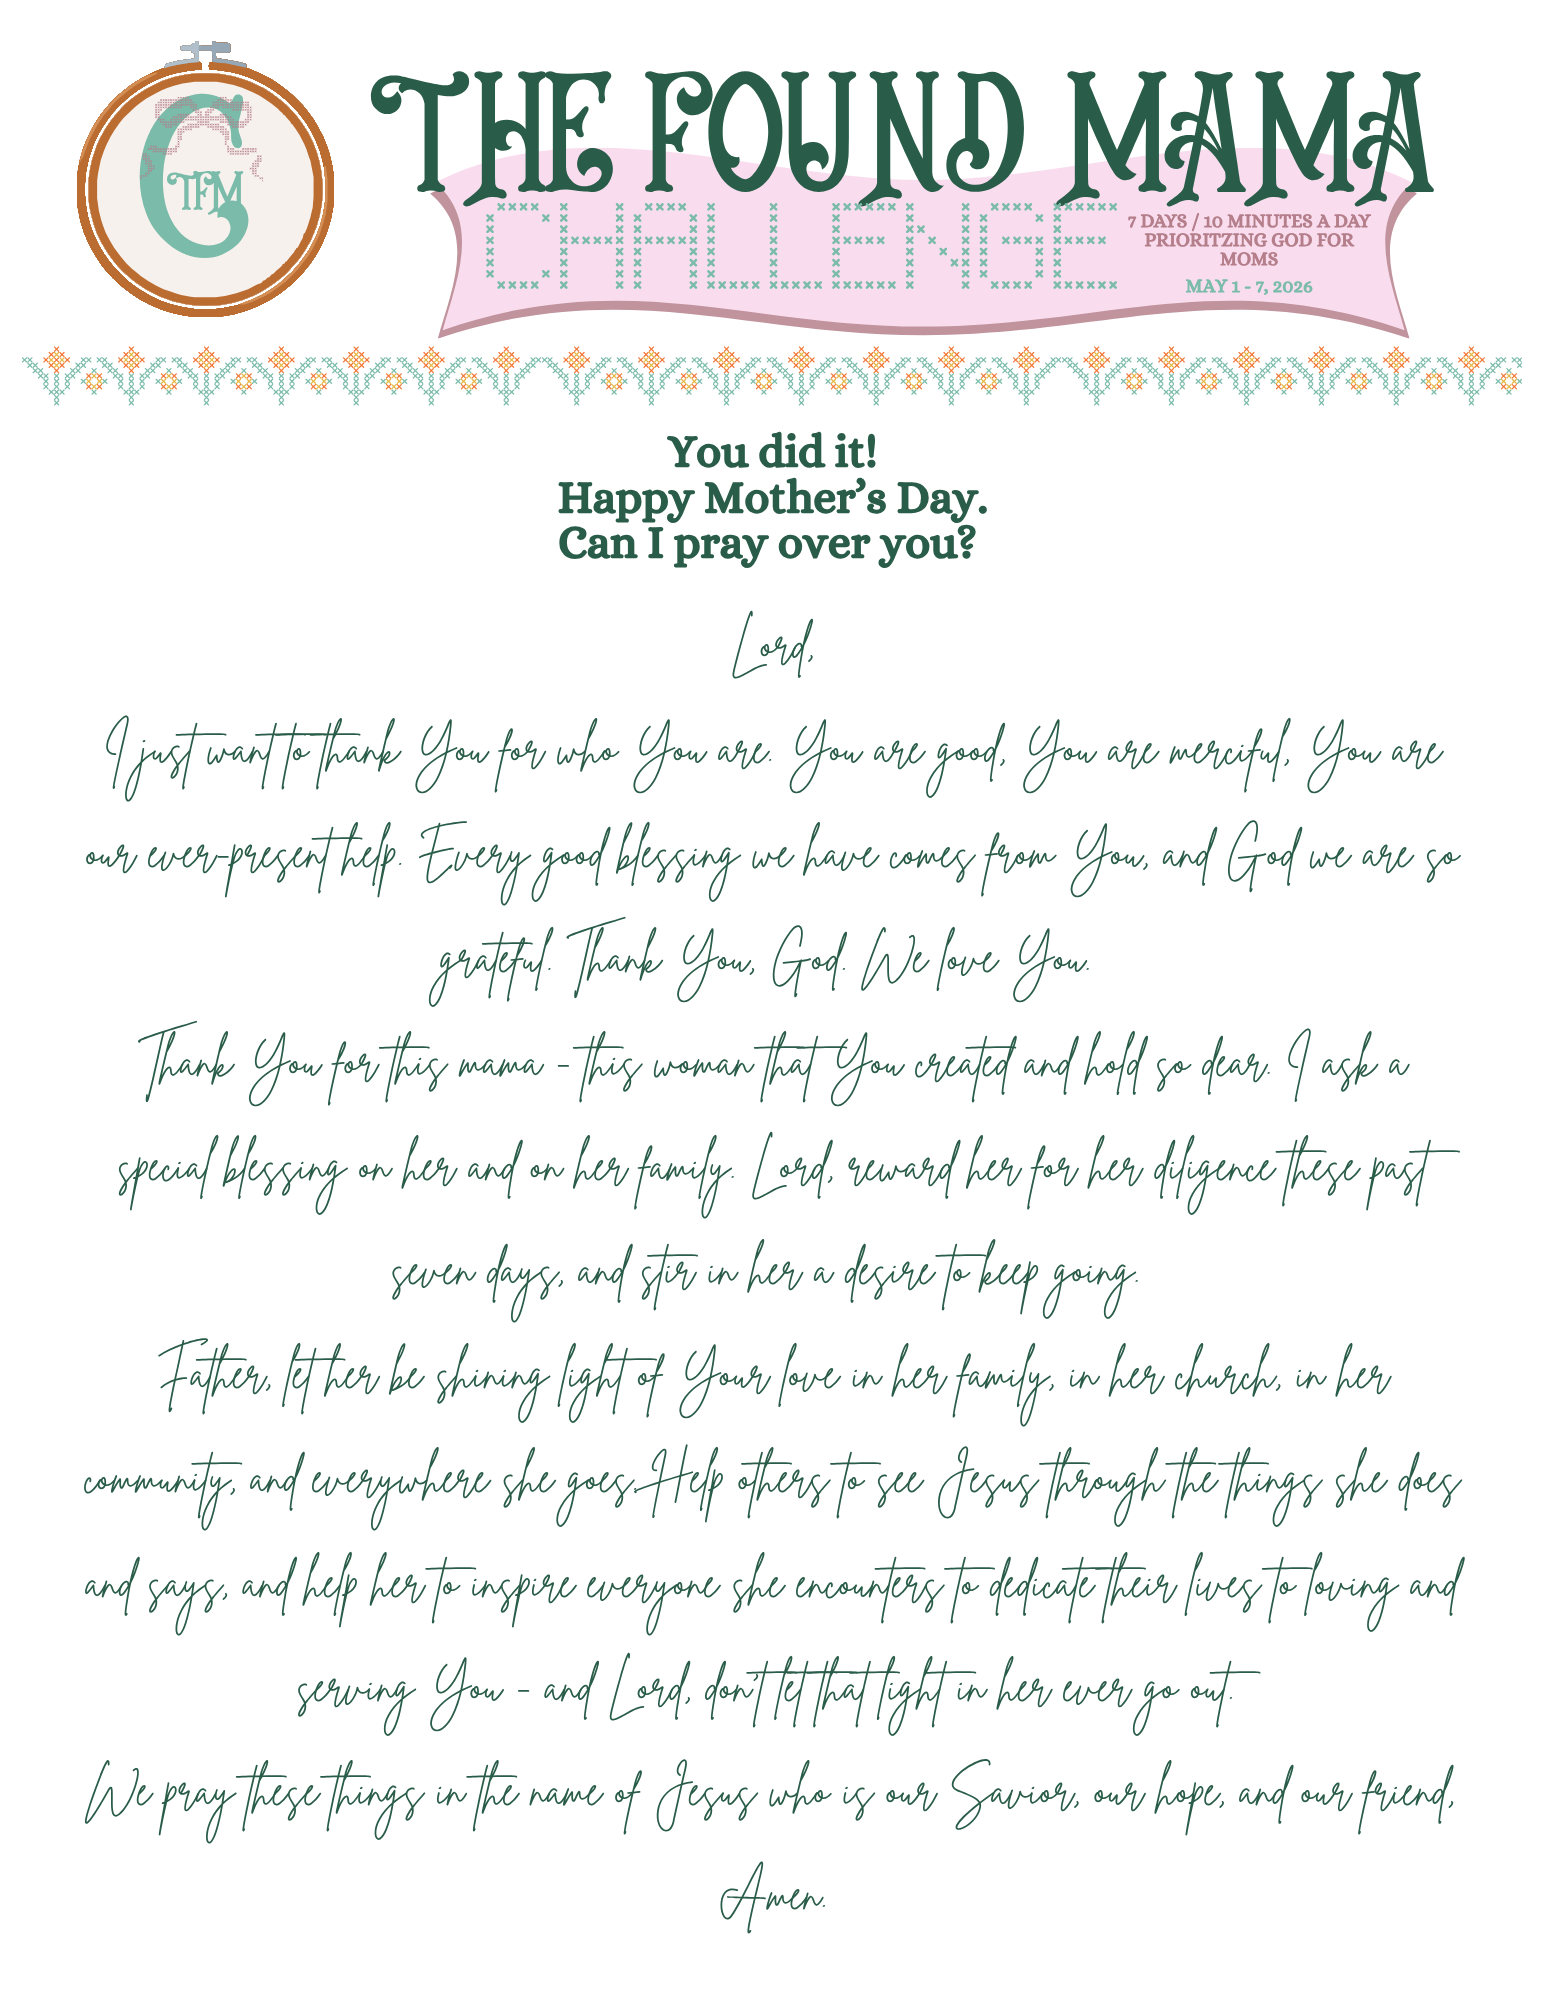 C
TFM
THE FOUND MAMA
CHALLENGE
7 DAYS / 10 MINUTES A DAY
PRIORITZING GOD FOR
MOMS
MAY 1 - 7, 2026
You did it!
Happy Mother's Day.
Can I pray over you?
Lord,
I just want to thank You for who You are. You are good, You are merciful, You are
our ever-present help. Every good blessing we have comes from You, and God we are so
grateful. Thank You, God. We love You.
Thank You for this mama - this woman that You created and hold so dear. I ask a
special blessing on her and on her family. Lord, reward her for her diligence these past
seven days, and stir in her a desire to keep going.
Father, let her be shining light of Your love in her family, in her church, in her
community, and everywhere she goes. Help others to see Jesus through the things she does
and says, and help her to inspire everyone she encounters to dedicate their lives to loving and
serving You - and Lord, don't let that light in her ever go out.
We pray these things in the name of Jesus who is our Savior, our hope, and our friend,
Amen.